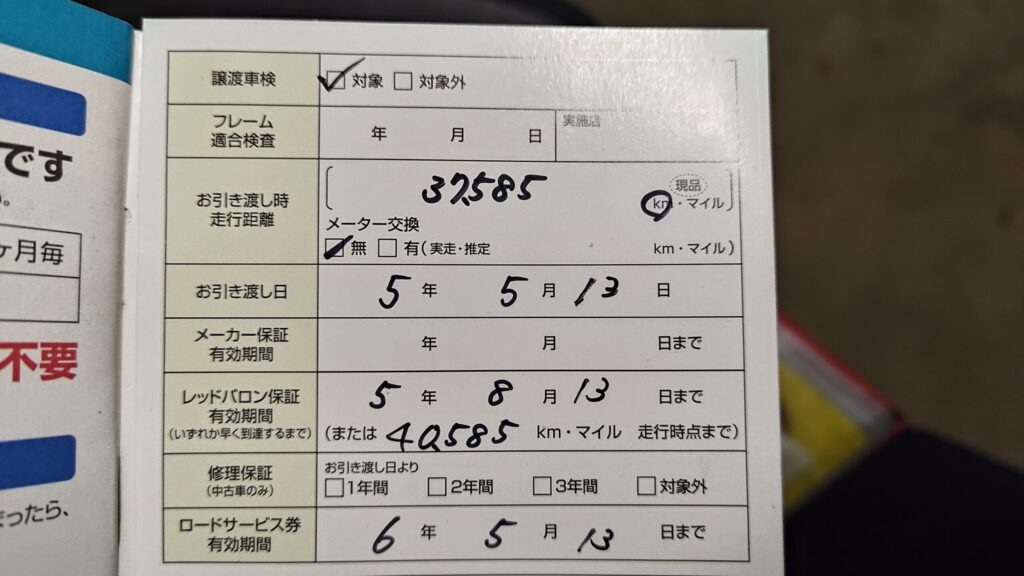 です
ヶ月毎
不要
まったら、
譲渡車検 ☑対象 □対象外
フレーム
適合検査
年 月 日 実施店
お引き渡し時
走行距離
37,585 現品
km・マイル
メーター交換
☑無 □有(実走・推定 km・マイル)
お引き渡し日 5年 5月13日
メーカー保証
有効期間
年 月 日まで
レッドバロン保証
有効期間
(いずれか早く到達するまで)
5年 8月13日まで
(または 40,585 km・マイル 走行時点まで)
修理保証
(中古車のみ)
お引き渡し日より
□1年間 □2年間 □3年間 □対象外
ロードサービス券
有効期間
6年 5月13日まで